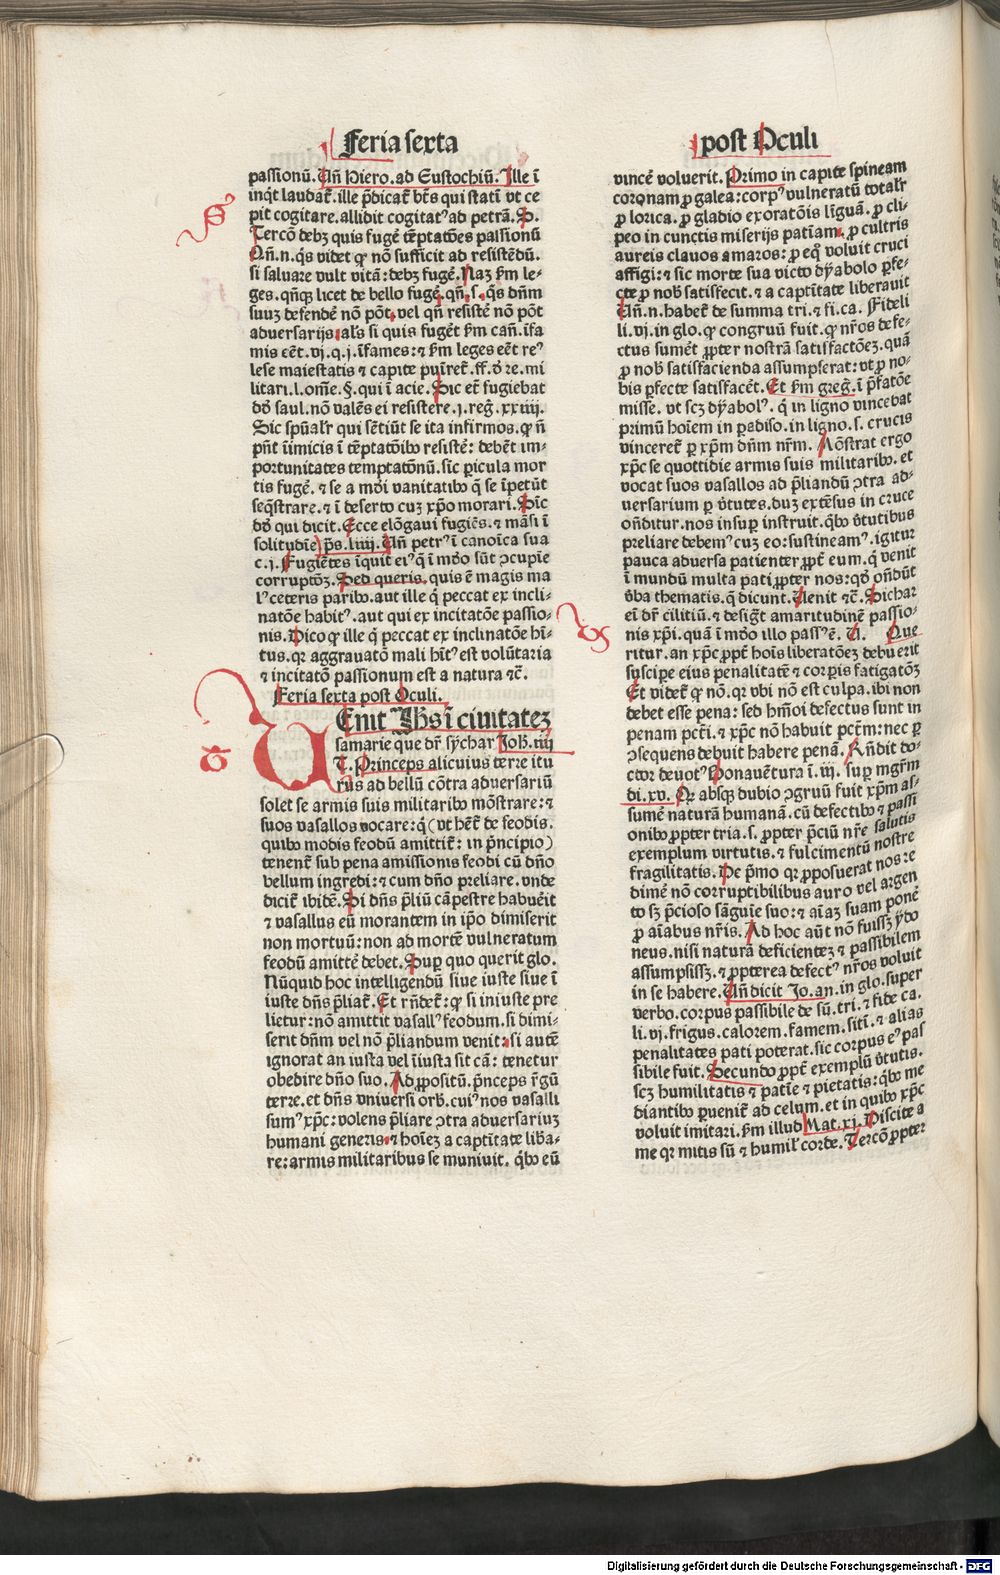 Feria sexta
passionū. Uñ Hiero. ad Eustochiū. Ille ī
inqt laudat̄. ille p̄dicat̄ bt̄s qui statī vt ce
pit cogitare. allidit cogitatꝰ ad petrā. S.
Tercō debꝫ quis fugē tēptatōes passionū
Qñ. n. qͥs videt ꝙ nō sufficit ad resistēdū.
si saluare vult vitā: debꝫ fugē. Naꝫ ẜm le-
ges. qñqꝫ licet de bello fugē. qñ. s. qͥs dñm
suuꝫ defendē nō pōt. vel qñ resistē nō pōt
adversarijs. als̄ si quis fugēt ẜm cañ. īfa
mis eēt. vj. q. j. īfames: ⁊ ẜm leges eēt reꝰ
lese maiestatis ⁊ capite puīret̄. ff. ð re. mi
litari. l. om̄e. §. qui ī acie. Sic et̄ fugiebat
dð saul. nō valēs ei resistere. j. reg̃. xxiiij.
Sic spūalr̄ qui sētiūt se ita infirmos. ꝙ ñ
pñt īimicis ī tēptatōibꝰ resistē: debēt im-
portunitates temptatōnū. sic ꝑicula mor
tis fugē. ⁊ se a mōi vanitatibꝰ q̄ se īpetūt
seq̄strare. ⁊ ī deserto cuꝫ xp̄o morari. Sic
dð qui dicit. Ecce elōgaui fugiēs. ⁊ māsi ī
solitudīe ps. liiij. Uñ petrꝰ ī canoīca sua
c. j. Fugiētes īquit eiꝰ q̄ ī mōo sūt ↄcupīe
corruptōꝫ. Sed queris. quis ē magis ma
lꝰ ceteris paribꝰ. aut ille q̇ peccat ex incli-
natōe habitꝰ. aut qui ex incitatōe passio-
nis. Dico ꝙ ille q̇ peccat ex inclinatōe hī-
tus. qꝛ aggrauatō mali hītꝰ est volūtaria
⁊ incitatō passionum est a natura ⁊c̄.
Feria sexta post Oculi.
UEnit Ihs ī ciuitateꝫ
samarie que dr̄ sychar Joh̄. iiij
T. Princeps alicuius terre itu
rus ad bellū cōtra adversariū
solet se armis suis militaribꝰ mōstrare: ⁊
suos vasallos vocare: q̇ (vt hēt̄ de feodis.
quibꝰ modis feodū amittit̄: in pn̄cipio)
tenent̄ sub pena amissionis feodi cū dn̄o
bellum ingredi: ⁊ cum dn̄o preliare. vnde
dicit̄ ibidē. Si dn̄s p̄liū cāpestre habuēit
⁊ vasallus eū morantem in ip̄o dimiserit
non mortuū: non ad mortē vulneratum
feodū amittē debet. Suꝑ quo querit glo.
Nūquid hoc intelligendū siue iuste siue ī
iuste dn̄s p̄liat̄. Et rn̄det̄: ꝙ si iniuste pre
lietur: nō amittit vasallꝰ feodum. si dimi-
serit dn̄m vel nō p̄liandum venit: si autē
ignorat an iusta vel īiusta sit cā: tenetur
obedire dn̄o suo. Ad ꝓpositū. pn̄ceps r̄gū
terre. et dn̄s vniuersi orb̄. cuiꝰ nos vasalli
sumꝰ xp̄c: volens p̄liare ↄtra adversariuꝫ
humani generis. ⁊ hoīeꝫ a captītate lib̄a-
re: armis militaribus se muniuit. qͥbꝰ eū
post Oculi
vincē voluerit. Primo in capite spineam
coronam ꝓ galea: corpꝰ vulneratū totalr̄
ꝓ lorica. ꝓ gladio exoratōis līguā. ꝓ cli-
peo in cunctis miserijs patiam. ꝓ cultris
aureis clauos amaros: ꝓ eq̊ voluit cruci
affigi: ⁊ sic morte sua victo dyabolo ꝑfe-
cte ꝓ nob̄ satisfecit. ⁊ a captītate liberauit
Uñ. n. habet̄ de summa tri. ⁊ fi. ca. Fideli
li. vj. in glo. ꝙ congruū fuit. ꝙ nr̄os defe-
ctus sumēt ꝓpter nostrā satisfactōeꝫ. quā
ꝓ nob̄ satisfacienda assumpserat: vt ꝓ no-
bis ꝑfecte satisfacēt. Et ẜm greg̃. ī p̄fatōe
misse. vt scꝫ dyabolꝰ. q̇ in ligno vincebat
primū hoīem in ꝑadiso. in ligno. s. crucis
vinceret̄ ꝑ xp̄m dn̄m nr̄m. Mōstrat ergo
xp̄c se quottidie armis suis militaribꝰ. et
vocat suos vasallos ad p̄liandū ↄtra ad-
versarium ꝑ v̄tutes. duꝫ extēsus in cruce
on̄ditur. nos insuꝑ instruit. qͥbꝰ v̄tutibus
preliare debemꝰ cuꝫ eo: sustineamꝰ. igitur
pauca adversa patienter ꝓpt̄ eum. q̇ venit
ī mundū multa pati ꝓpter nos: qð on̄dūt
v̄ba thematis. q̄ dicunt. Uenit ⁊c̄. Sichar
eī dr̄ cilitiū. ⁊ desig̃t amaritudinē passio-
nis xp̄i. quā ī mōo illo passꝰ ē. Q. Que
ritur. an xp̄c ꝓpt̄ hoīs liberatōeꝫ debuerit
suscipe eius penalitatē ⁊ corꝑis fatigatōꝫ
Et videt̄ ꝙ nō. qꝛ vbi nō est culpa. ibi non
debet esse pena: sed hm̄oi defectus sunt in
penam pct̄i. ⁊ xp̄c nō habuit pctm̄: nec ꝑ
ↄsequens debuit habere penā. Rn̄dit do-
ctor deuotꝰ Bonauētura ī. iij. suꝑ mgr̄m
di. xv. Qꝛ absqꝫ dubio ↄgruū fuit xp̄m as-
sumē naturā humanā. cū defectibꝰ ⁊ passi
onibꝰ ꝓpter tria. s. ꝓpter p̄ciū nr̄e salutis
exemplum virtutis. ⁊ fulcimentū nostre
fragilitatis. De p̄mo qꝛ ꝓposuerat nos: e
dimē nō corruptibilibus auro vel argen
to sꝫ p̄cioso sāguīe suo: ⁊ aīaꝫ suam ponē
ꝓ aīabus nr̄is. Ad hoc aūt nō fuissꝫ ydo
neus. nisi naturā deficienteꝫ ⁊ passibilem
assumpsissꝫ. ⁊ ꝓpterea defectꝰ nr̄os voluit
in se habere. Uñ dicit Jo. an. in glo. super
verbo. corpus passibile de sū. tri. ⁊ fide ca.
li. vj. frigus. calorem. famem. sitī. ⁊ alias
penalitates pati poterat. sic corpus eꝰ pas
sibile fuit. Secundo ꝓpt̄ exemplū v̄tutis.
scꝫ humilitatis ⁊ patīe ⁊ pietatis: qͥbꝰ me
diantibꝰ ꝑuenit̄ ad celum. et in quibꝰ xp̄c
voluit imitari. ẜm illud Mat. xj. Discite a
me qꝛ mitis sū ⁊ humil̄ corde. Tercō ꝓpter
Digitalisierung gefördert durch die Deutsche Forschungsgemeinschaft - DFG